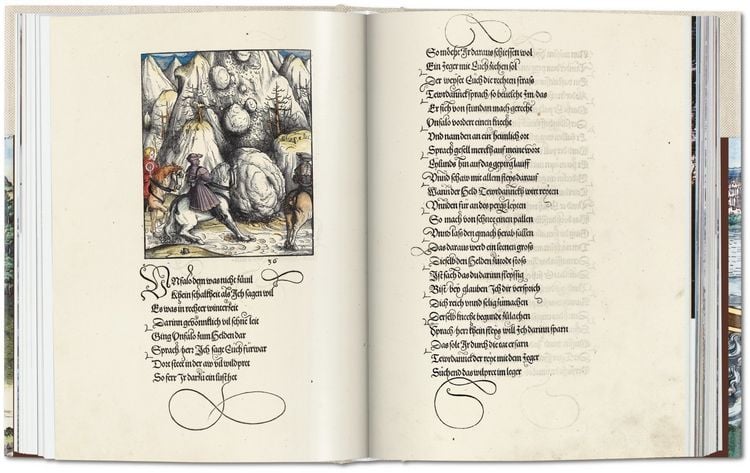 36
Unfalo dem was nicht zuuil
Khein schalkheit als Ich sagen wil
Es was in rechter winterzeit
Darinn gewönntlich vil schne leit
Ging Unfalo zum Helden dar
Sprach herr Ich sage Euch furwar
Dort steet in der aw vil wildpret
So ferr Ir darzu ein lust het
So möcht Ir daraus schiessen wol
Ein Jeger mit Euch ziehen sol
Der weyset Euch die rechten straß
Tewrdannck sprach so beuelcht Im das
Er sich von stundan mach gerecht
Unfalo vordert einen knecht
Unnd nam den an ein heimlich ort
Sprach gesell merckh auf meine wort
Eylunds hin auf das gepirg lauff
Unnd schaw mit allem fleys darauf
Wann der Held Tewrdannckh wirt reyten
Unnden für an des pergs leyten
So mach von schnee einen pallen
Unnd laß den gmach herab fallen
Das daraus werd ein schnen groß
Dieselb den Helden zutodt stoß
Ist sach das du darinn fleyssig
Bist bey glauben Ich dir versprich
Dich reich unnd selig zumachen
Derselb knecht begundt zu lachen
Sprach herr khein fleys will Ich darinn sparn
Das solt Ir durch die tat erfarn
Tewrdannckh der reyt mit dem Jeger
Suchend das wilpret im leger